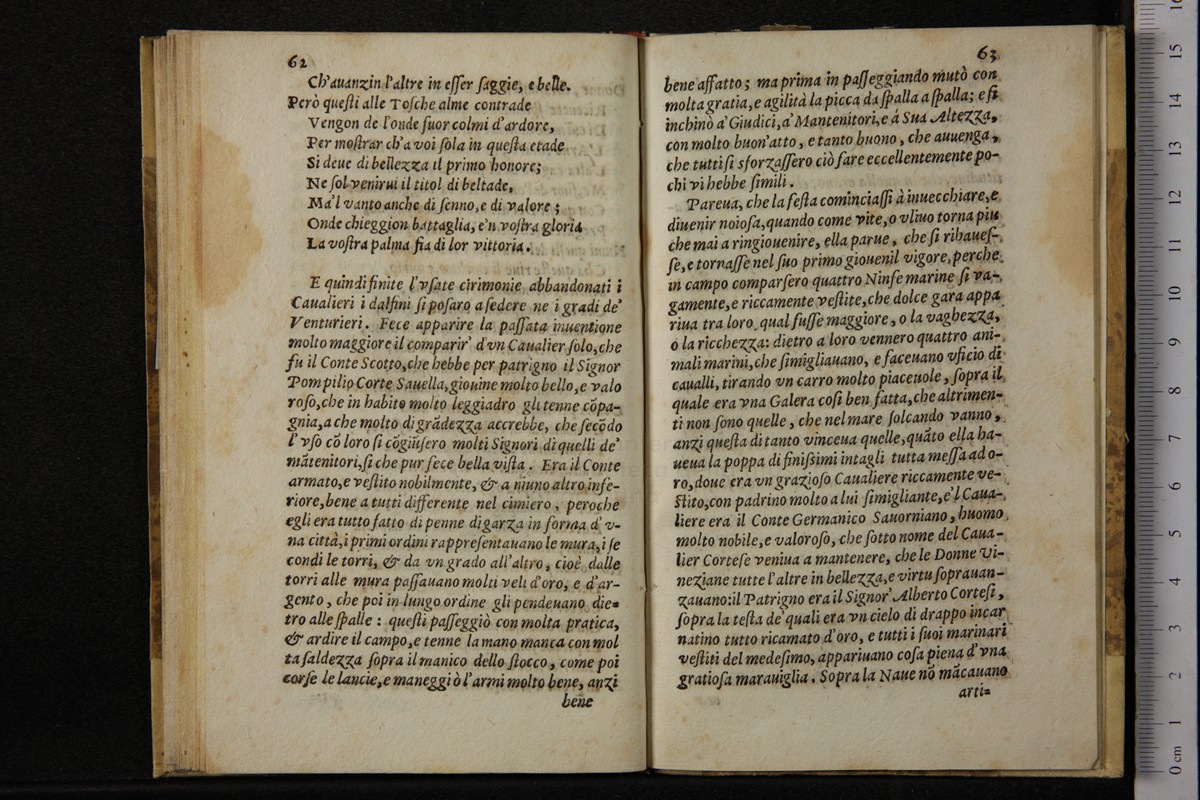 62
Ch'auanzin l'altre in eſſer ſaggie, e belle.
Però queſti alle Toſche alme contrade
Vengon de l'onde fuor colmi d'ardore,
Per moſtrar ch'a voi ſola in queſta etade
Si deue di bellezza il primo honore;
Ne ſol venirui il titol di beltade,
Ma'l vanto anche di ſenno, e di valore;
Onde chieggion battaglia, e'n voſtra gloria
La voſtra palma fia di lor vittoria.
E quindi finite l'vſate cirimonie, abbandonati i
Caualieri i dalfini ſi poſaro a ſedere ne i gradi de'
Venturieri. Fece apparire la paſſata inuentione
molto maggiore il comparir' d'vn Caualier ſolo, che
fu il Conte Scotto, che hebbe per patrigno il Signor
Pompilio Corte Sauella, giouine molto bello, e valo
roſo, che in habito molto leggiadro gli tenne cōpa-
gnia, a che molto di grādezza accrebbe, che ſecōdo
l'vſo cō loro ſi cōgiūſero molti Signori di quelli de'
mātenitori, ſi che pur fece bella viſta. Era il Conte
armato, e veſtito nobilmente, & a niuno altro infe-
riore, bene a tutti differente nel cimiero, peroche
egli era tutto fatto di penne di garza in forma d'v-
na città, i primi ordini rappreſentauano le mura, i ſe
condi le torri, & da vn grado all'altro, cioè dalle
torri alle mura paſſauano molti veli d'oro, e d'ar-
gento, che poi in lungo ordine gli pendeuano die-
tro alle ſpalle: queſti paſſeggiò con molta pratica,
& ardire il campo, e tenne la mano manca con mol
ta ſaldezza ſopra il manico dello ſtocco, come poi
corſe le lancie, e maneggiò l'armi molto bene, anzi
bene
63
bene affatto; ma prima in paſſeggiando mutò con
molta gratia, e agilità la picca da ſpalla a ſpalla; e ſi
inchinò a' Giudici, a' Mantenitori, e á Sua Altezza,
con molto buon'atto, e tanto buono, che auuenga,
che tutti ſi sforzaſſero ciò fare eccellentemente po-
chi vi hebbe ſimili.
Pareua, che la feſta cominciaſſi à inuecchiare, e
diuenir noioſa, quando come vite, o vliuo torna piu
che mai a ringiouenire, ella parue, che ſi rihaueſ-
ſe, e tornaſſe nel ſuo primo giouenil vigore, perche
in campo comparſero quattro Ninfe marine ſi va-
gamente, e riccamente veſtite, che dolce gara appa
riua tra loro qual fuſſe maggiore, o la vaghezza,
ò la ricchezza: dietro a loro vennero quattro ani-
mali marini, che ſimigliauano, e faceuano vficio di
caualli, tirando vn carro molto piaceuole, ſopra il
quale era vna Galera coſi ben fatta, che altrimen-
ti non ſono quelle, che nel mare ſolcando vanno,
anzi queſta di tanto vinceua quelle, quāto ella ha-
ueua la poppa di finiſsimi intagli tutta meſſa ad o-
ro, doue era vn grazioſo Caualiere riccamente ve-
ſtito, con padrino molto a lui ſimigliante, e'l Caua-
liere era il Conte Germanico Sauorniano, huomo
molto nobile, e valoroſo, che ſotto nome del Caua-
lier Corteſe veniua a mantenere, che le Donne Vi-
neziane tutte l'altre in bellezza, e virtu ſoprauan-
zauano: il Patrigno era il Signor' Alberto Corteſi,
ſopra la teſta de' quali era vn cielo di drappo incar
natino tutto ricamato d'oro, e tutti i ſuoi marinari
veſtiti del medeſimo, appariuano coſa piena d'vna
gratioſa marauiglia. Sopra la Naue nō mācauano
arti-
0 cm
1
2
3
4
5
6
7
8
9
10
11
12
13
14
15
16